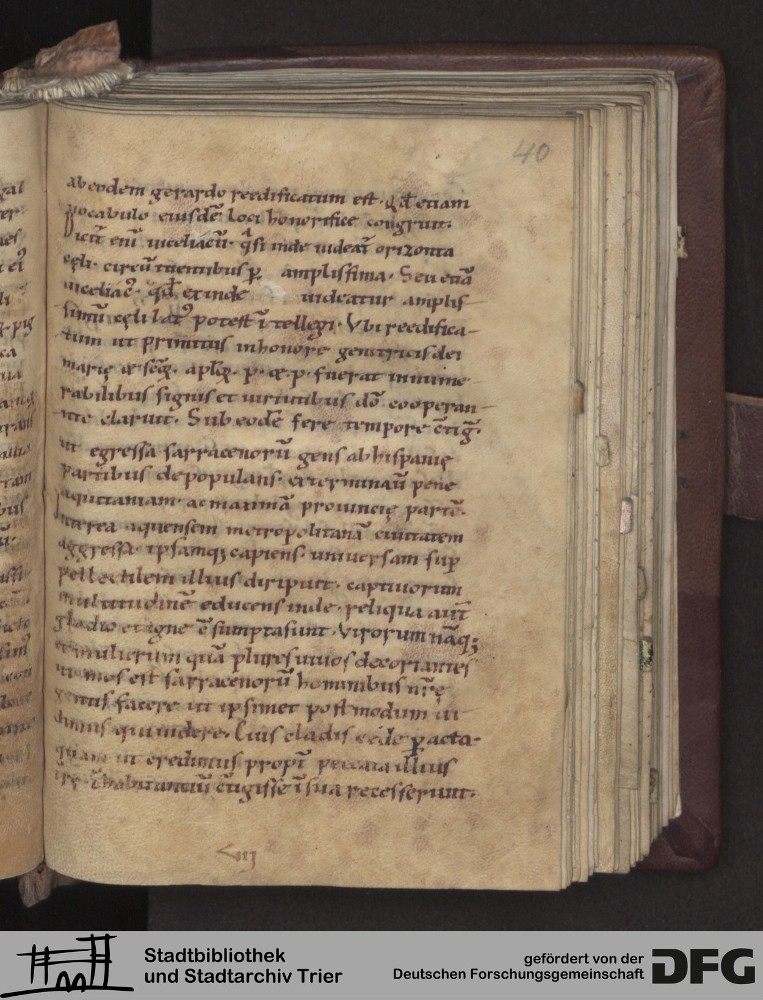 40
ab eodem gerardo reedificatum est. qd̄ etiam
vocabulo eiusdē loci honorifice congruit.
Dicit̄ enī uiceliacū. q̄si inde uideat̄ orizonta
cęli. circū tuentibus ꝑ amplissima. Seu etiā
uiceliac᷒. qd̄ exinde uideatur amplis-
simū cęli lat᷒ potest ītellegi. Vbi reedifica-
tum ut primitus in honore genitricis dei
marię & scōꝝ. aplōꝝ. p. & . p. fuerat innume-
rabilibus signis et uirtutibus dō cooperan-
te claruit. Sub eodē fere tempore c̄tig̅.
ut egressa sarracenorū gens ab hispanię
partibus depopulans. exterminaū pene
aquitaniam. ac maximā prouincię partē.
Interea aquensem metropolitanā ciuitatem
aggressa. ipsamq; capiens. uniuersam suꝑ
pellectilem illius diripuit. captiuorum
multitudinē educens inde. reliqua aūt
gladio et igne c̄sumpta sunt. Virorum nāq;
et mulierum quā plures uiuos decoriantes
ut mos est sarracenorū hominibus nr̄ę
gentis facere. ut ipsimet postmodum ui-
dimus
Cuius cladis cede ꝑacta.
quam ut credimus propt̄ peccata illius
habitantiū c̄tigisse ī sua recesserunt.
Stadtbibliothek
und Stadtarchiv Trier
gefördert von der
Deutschen Forschungsgemeinschaft
DFG